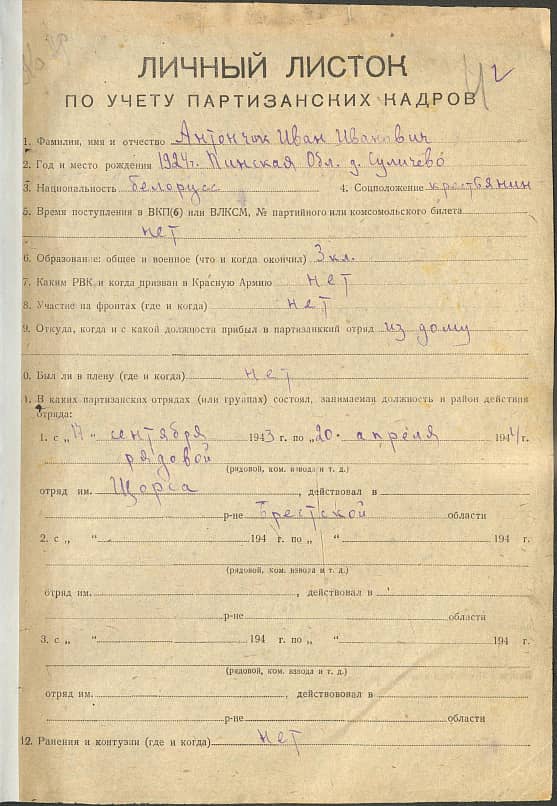 2
ЛИЧНЫЙ ЛИСТОК
ПО УЧЕТУ ПАРТИЗАНСКИХ КАДРОВ
1. Фамилия, имя и отчество Антончик Иван Иванович
2. Год и место рождения 1924г. Пинская Обл. д. Суличево
3. Национальность белорусс 4. Соцположение крестьянин
5. Время поступления в ВКП(б) или ВЛКСМ, № партийного или комсомольского билета
нет
6. Образование: общее и военное (что и когда окончил) 3 кл.
7. Каким РВК и когда призван в Красную Армию нет
8. Участие на фронтах (где и когда) нет
9. Откуда, когда и с какой должности прибыл в партизанккий отряд из дому
0. Был ли в плену (где и когда) нет
1. В каких партизанских отрядах (или группах) состоял, занимаемая должность и район действия
отряда:
1. с „17" сентября 1943 г. по „20" апреля 1944 г.
рядовой
(рядовой, ком. взвода и т. д.)
отряд им. Щорса, действовал в
р-не Брестской области
2. с „ " 194 г. по „ " 194 г.
(рядовой, ком. взвода и т. д.)
отряд им. , действовал в
р-не области
3. с „ " 194 г. по „ " 194 г.
(рядовой, ком. взвода и т. д.)
отряд им. , действововал в
р-не области
12. Ранения и контузии (где и когда) нет